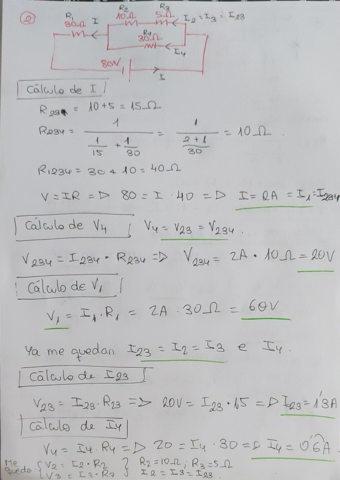 ②
R₁ 30Ω I R₂ 10Ω R₃ 5Ω I₂ = I₃ = I₂₃
R₄ 30Ω I₄
80V I
Cálculo de I
R₂₃ = 10+5 = 15Ω
R₂₃₄ = 1 / (1/15 + 1/30) = 1 / ((2+1)/30) = 10Ω
R₁₂₃₄ = 30 + 10 = 40Ω
V = IR => 80 = I · 40 => I = 2A = I₁ = I₂₃₄
Cálculo de V₄ V₄ = V₂₃ = V₂₃₄
V₂₃₄ = I₂₃₄ · R₂₃₄ => V₂₃₄ = 2A · 10Ω = 20V
Cálculo de V₁
V₁ = I₁ · R₁ = 2A · 30Ω = 60V
Ya me quedan I₂₃ = I₂ = I₃ e I₄.
Cálculo de I₂₃
V₂₃ = I₂₃ · R₂₃ => 20V = I₂₃ · 15 => I₂₃ = 1'3A
Cálculo de I₄
V₄ = I₄ · R₄ => 20 = I₄ · 30 => I₄ = 0'6A
Me queda { V₂ = I₂ · R₂ R₂ = 10Ω, R₃ = 5Ω
V₃ = I₃ · R₃ I₂ = I₃ = I₂₃